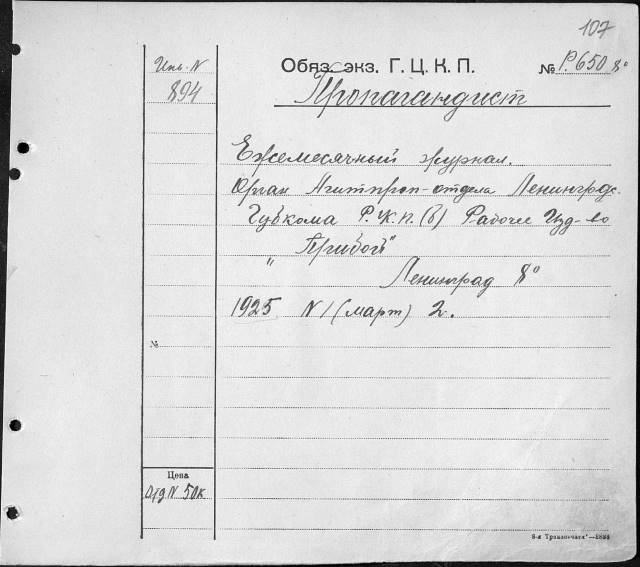 107
Инв. N
894
Обяз. экз. Г. Ц. К. П.
№ Р.650 8°
Пропагандист
Ежемесячный журнал.
Орган Агитпроп-отдела Ленинградс.
Губкома Р.К.П.(б) Рабочее Изд-во
„Прибой"
Ленинград 8°
1925 N 1 (март) 2.
№
Цена
отд N 50к